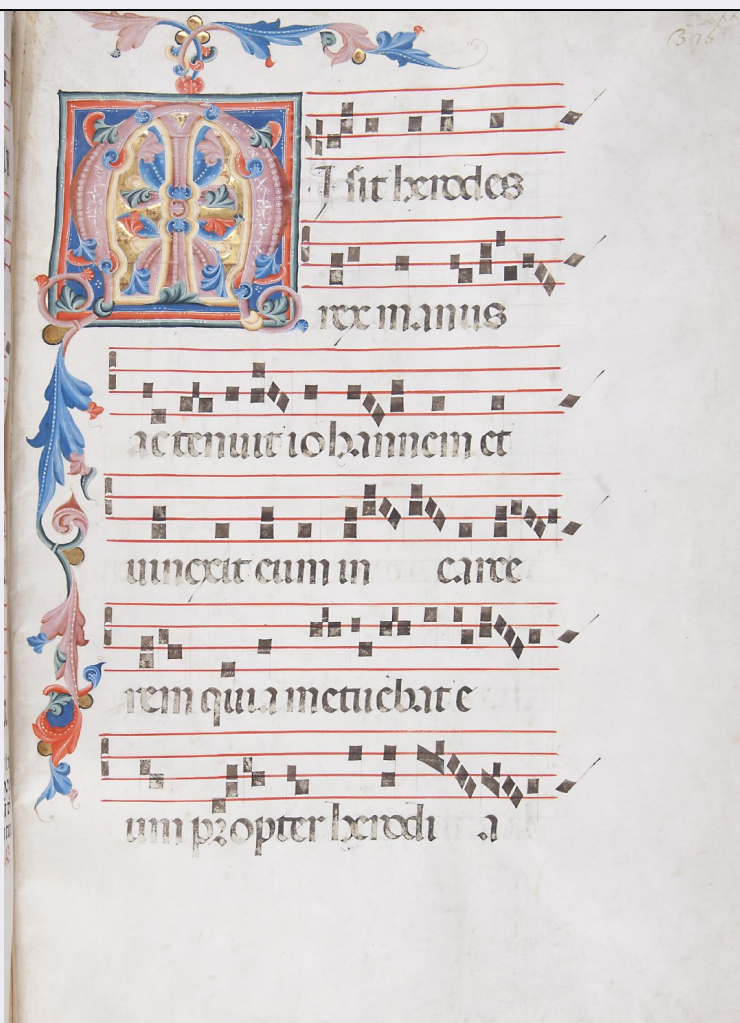 MI sit herodes
rex manus
ac tenuit iohannem et
uinxit eum in carce
rem quia metuebat e
um propter herodi a